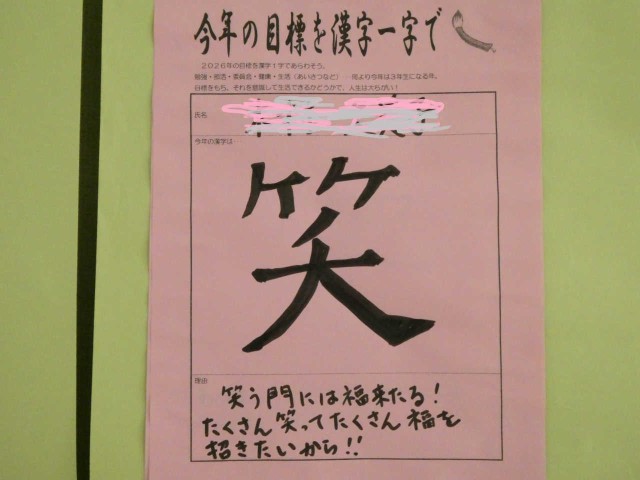 今年の目標を漢字一字で
2026年の目標を漢字1字であらわそう。
勉強・部活・委員会・健康・生活（あいさつなど） 何より今年は3年生になる年。
目標をもち、それを意識して生活できるかどうかで、人生は大ちがい！
氏名
今年の漢字は
笑
理由
笑う門には福来たる！
たくさん笑ってたくさん福を
招きたいから!!